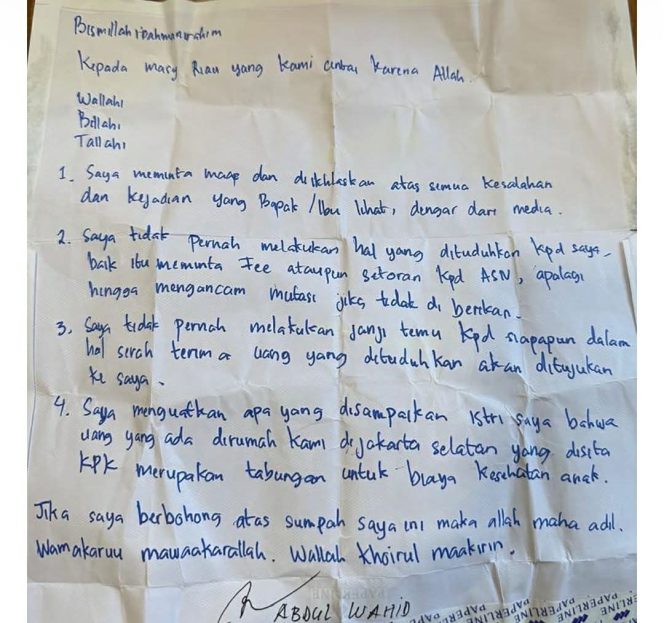 Bismillahirrahmanirrahim
Kepada masy Riau yang kami cintai karena Allah.
Wallahi
Billahi
Tallahi
1. Saya meminta maap dan diikhlaskan atas semua kesalahan
dan kejadian yang Bapak/Ibu lihat, dengar dari media.
2. Saya tidak pernah melakukan hal yang dituduhkan kpd saya.
baik itu meminta Fee ataupun setoran kpd ASN, apalagi
hingga mengancam mutasi jika tidak di berikan.
3. Saya tidak pernah melakukan janji temu kpd siapapun dalam
hal serah terima uang yang dituduhkan akan ditujukan
ke saya.
4. Saya menguatkan apa yang disampaikan istri saya bahwa
uang yang ada dirumah kami dijakarta selatan yang disita
KPK merupakan tabungan untuk biaya kesehatan anak.
Jika saya berbohong atas sumpah saya ini maka allah maha adil.
Wamakaruu mawaakarallah. Wallah khoirul maakirin.
ABDUL WAHID
PAPERLINE PAPERLINE PAPERLINE PAPERLINE